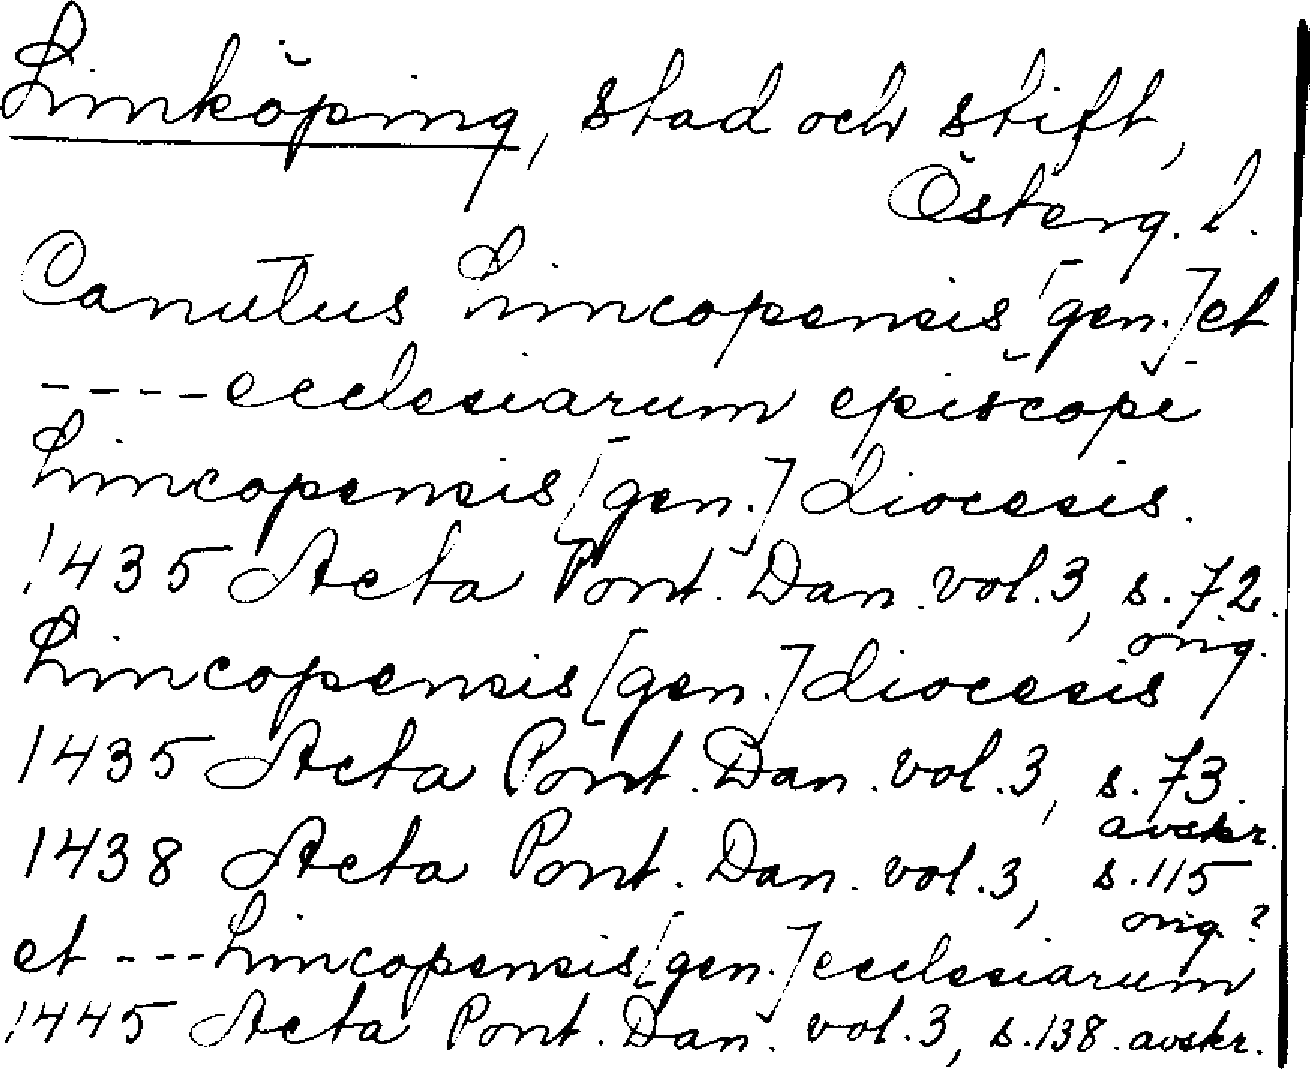 Linköping, stad och stift,
Österg. l.
Canutus Lincopensis [gen.] et
---- ecclesiarum episcopi
Lincopensis [gen.] diocesis.
1435 Acta Pont. Dan. vol. 3, s. 72.
orig.
Lincopensis [gen.] diocesis
1435 Acta Pont. Dan. vol. 3, s. 73.
avskr.
1438 Acta Pont. Dan. vol. 3, s. 115
orig.?
et --- Lincopensis [gen.] ecclesiarum
1445 Acta Pont. Dan. vol. 3, s. 138. avskr.